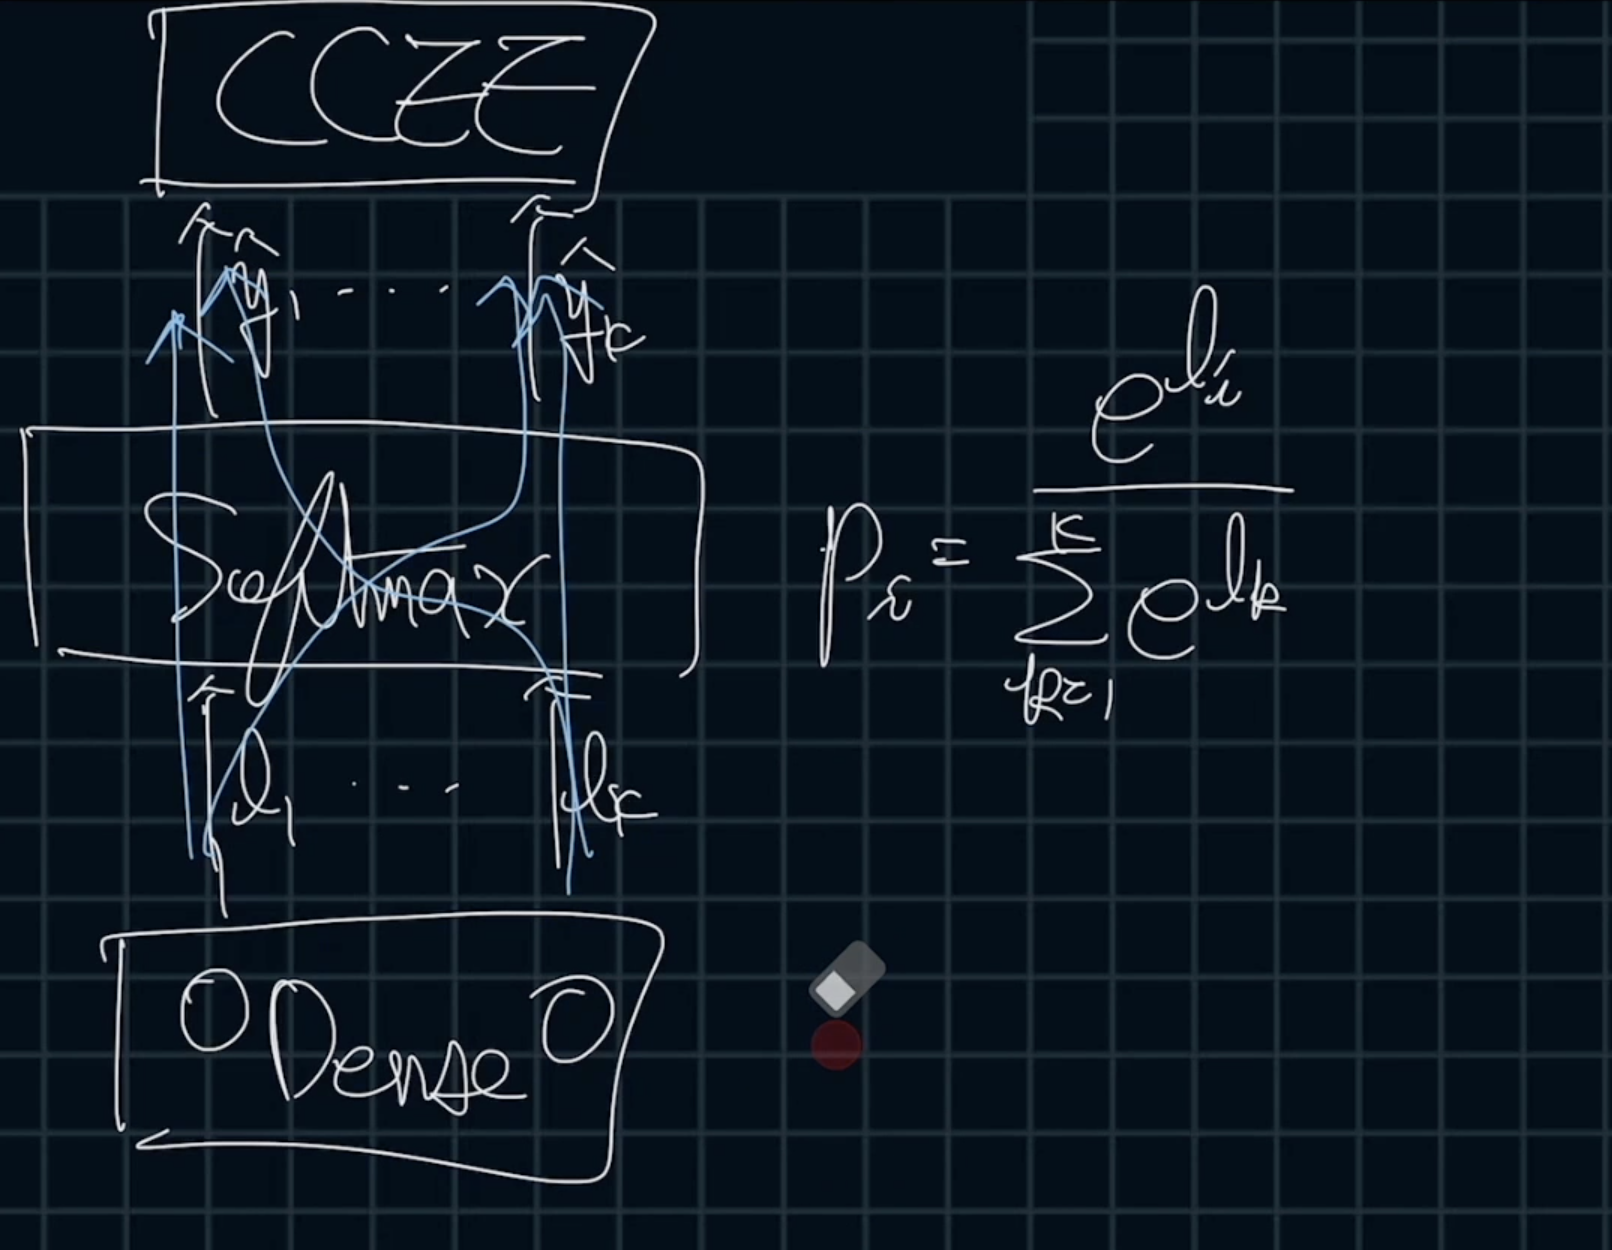 CCEE
ŷ₁ ... ŷ_K
Softmax
l₁ ... l_K
Dense
p_i = e^{l_i} / Σ_{k=1}^{K} e^{l_k}